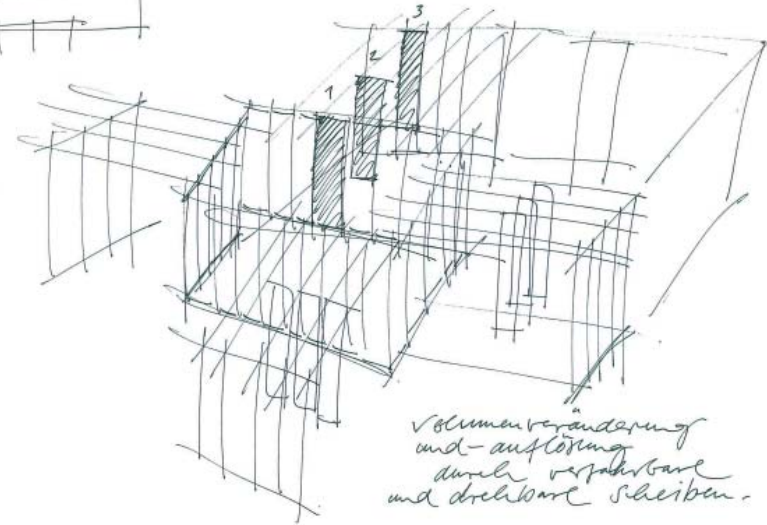 3
2
1
volumenveränderung
und -auflösung
durch verfahrbare
und drehbare Scheiben.